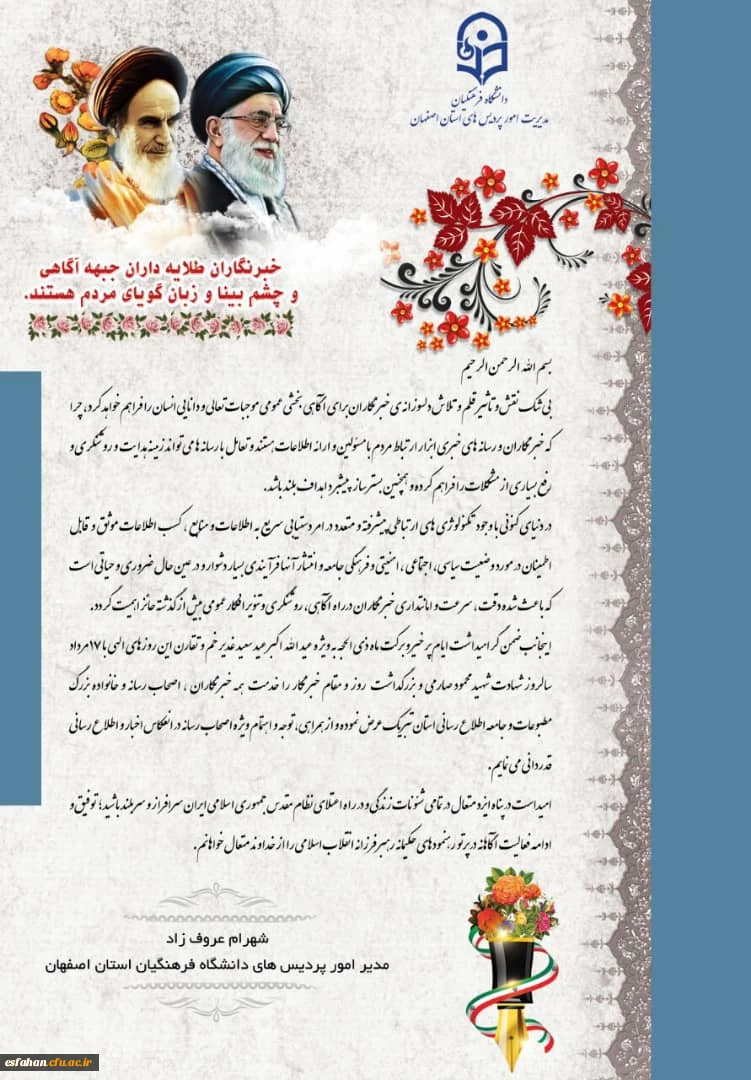 دانشگاه فرهنگیان
مدیریت امور پردیس های استان اصفهان
خبرنگاران طلایه داران جبهه آگاهی
و چشم بینا و زبان گویای مردم هستند.
بسم الله الرحمن الرحیم
بی شک نقش و تاثیر قلم و تلاش دلسوزانه ی خبرنگاران برای آگاهی بخشی عمومی موجبات تعالی و دانایی انسان را فراهم خواهد کرد، چرا
که خبرنگاران و رسانه های خبری ابزار ارتباط مردم با مسئولین و ارائه اطلاعات هستند و تعامل با رسانه ها می تواند زمینه هدایت و روشنگری و
رفع بسیاری از مشکلات را فراهم کرده و همچنین بسترساز پیشبرد اهداف بلند باشد.
در دنیای کنونی با وجود تکنولوژی های ارتباطی پیشرفته و متعدد در امر دستیابی سریع به اطلاعات و منابع ، کسب اطلاعات موثق و قابل
اطمینان در مورد وضعیت سیاسی، اجتماعی ، امنیتی و فرهنگی جامعه و انتشار آنها فرآیندی بسیار دشوار و در عین حال ضروری و حیاتی است
که باعث شده دقت، سرعت و امانتداری خبرنگاران در راه آگاهی، روشنگری و تنویر افکار عمومی بیش از گذشته حائز اهمیت گردد.
اینجانب ضمن گرامیداشت ایام پر خیر و برکت ماه ذی الحجه به ویژه عید الله اکبر عید سعید غدیر خم و تقارن این روزهای الهی با ۱۷ مرداد
سالروز شهادت شهید محمود صارمی و بزرگداشت روز و مقام خبرنگار را خدمت همه خبرنگاران ، اصحاب رسانه و خانواده بزرگ
مطبوعات و جامعه اطلاع رسانی استان تبریک عرض نموده و از همراهی، توجه و اهتمام ویژه اصحاب رسانه در انعکاس اخبار و اطلاع رسانی
قدردانی می نمایم.
امید است در پناه ایزد متعال در تمامی شئونات زندگی و در راه اعتلای نظام مقدس جمهوری اسلامی ایران سرافراز و سربلند باشید؛ توفیق و
ادامه فعالیت آگاهانه در پرتو رهنمودهای حکیمانه رهبر فرزانه انقلاب اسلامی را از خداوند متعال خواهانم.
شهرام عروف زاد
مدیر امور پردیس های دانشگاه فرهنگیان استان اصفهان
esfahan.cfu.ac.ir